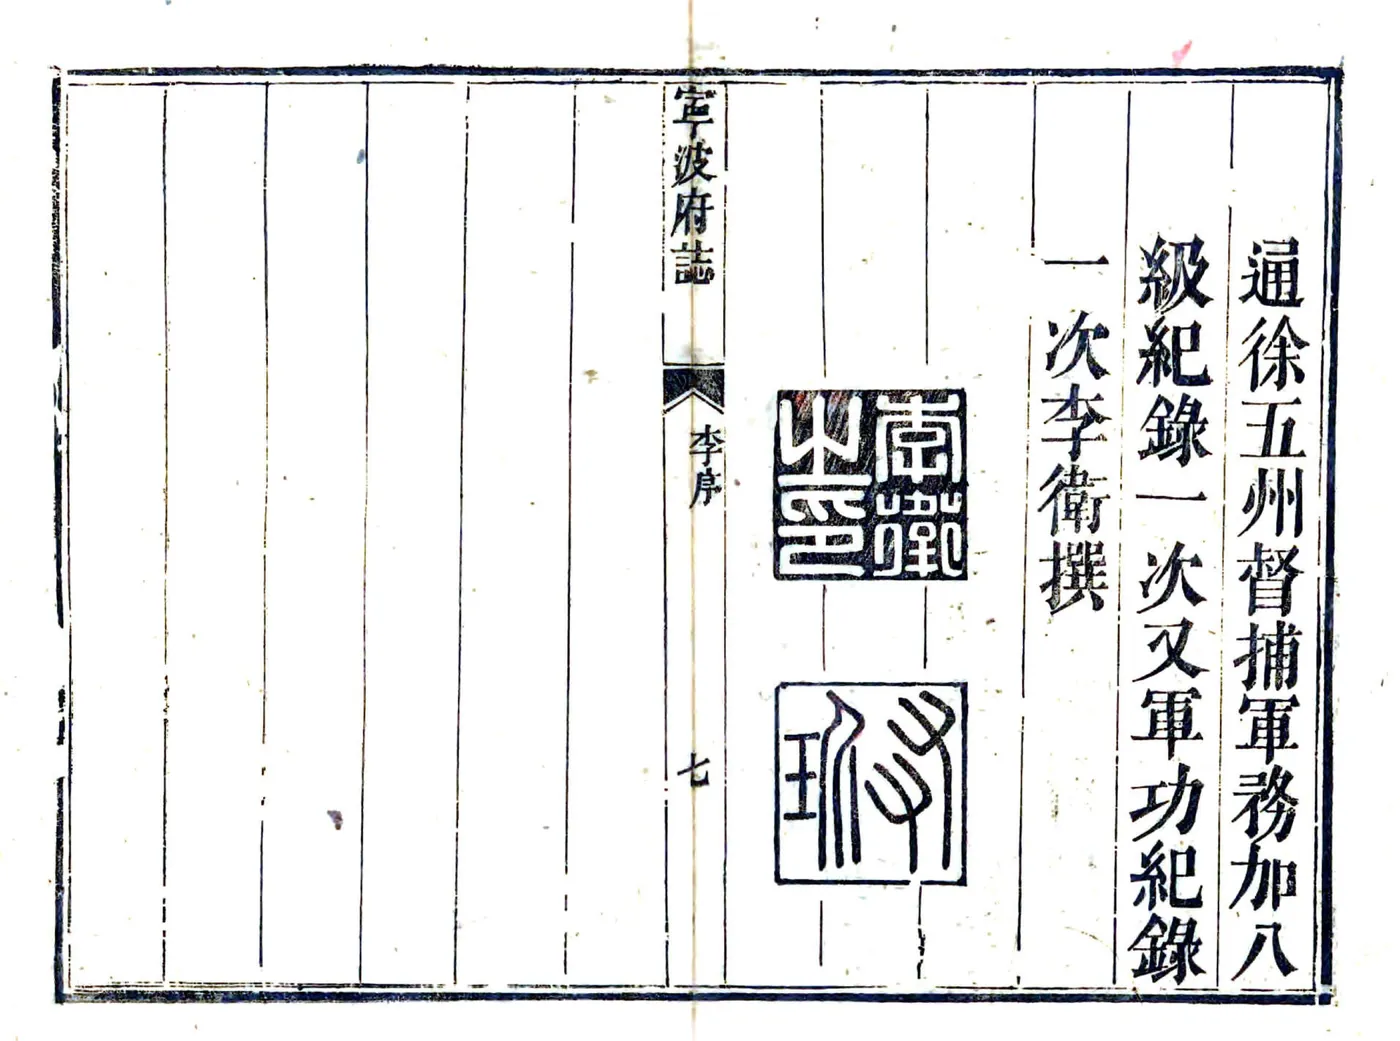 通徐五州督捕軍務加八
級紀錄一次又軍功紀錄
一次李衛撰
李衛
之印
寧波府誌
李序
七